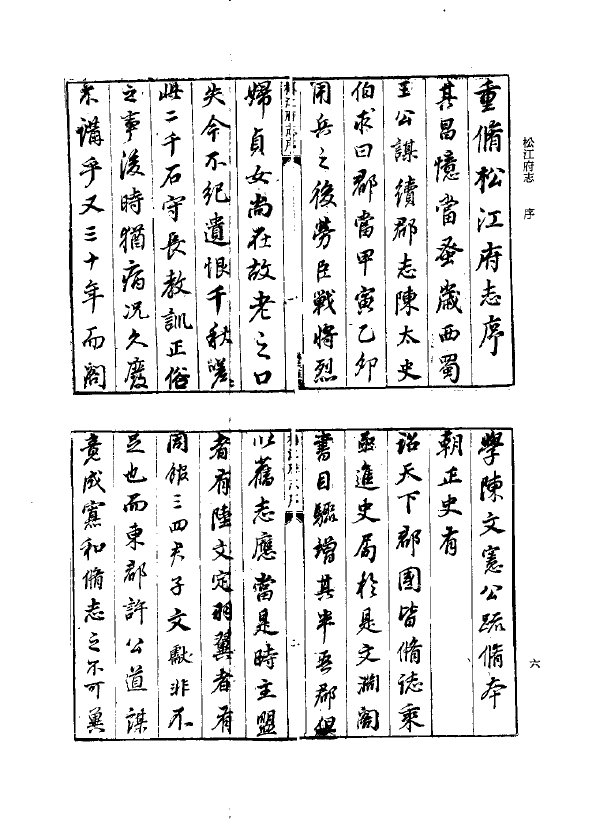 松江府志　序
重脩松江府志序
其昌憶當癸歲西蜀
王公謀續郡志陳太史
伯求曰郡當甲寅乙卯
用兵之後勞臣戰將烈
松江府志序
一
婦貞女尚在故老之口
失今不紀遺恨千秋嗟嗟
此二千石守長教訓正俗
之事後時猶病况久廢
不講乎又三十年而閣
學陳文憲公疏脩本
朝正史有
詔天下郡國皆脩誌乘
亟進史局於是文淵閣
書目驟增其半吾郡
松江府志序
二
以舊志應當是時主盟
者有陸文定羽翼者有
周館三四君子文獻非不
足也而東郡許公道謀
竟成寡和脩志之不可
六